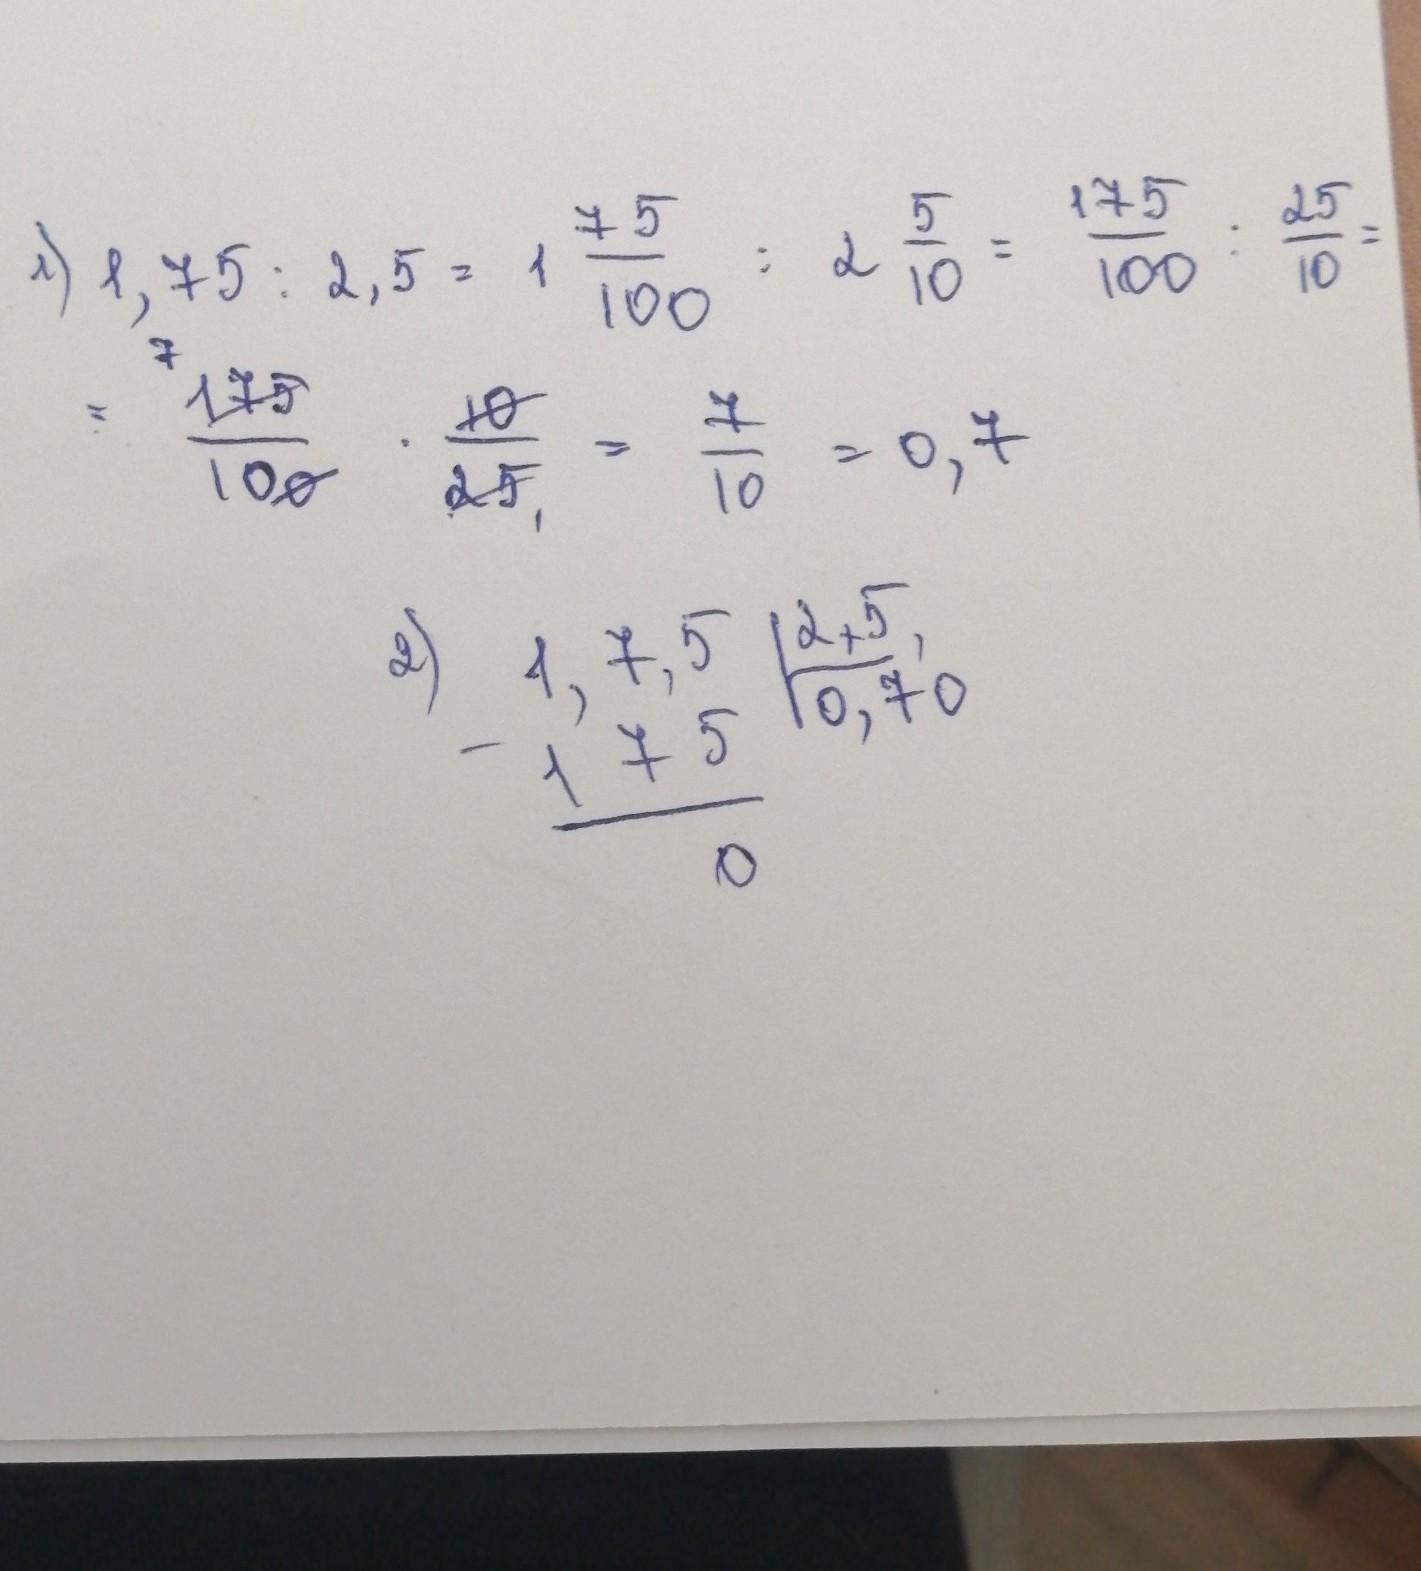 1) 1,75 : 2,5 = 1 75/100 : 2 5/10 = 175/100 : 25/10 =
= 7 175/100 · 10/25 1 = 7/10 = 0,7
2) 1,7,5 | 2,5,
- 175 | 0,70
0